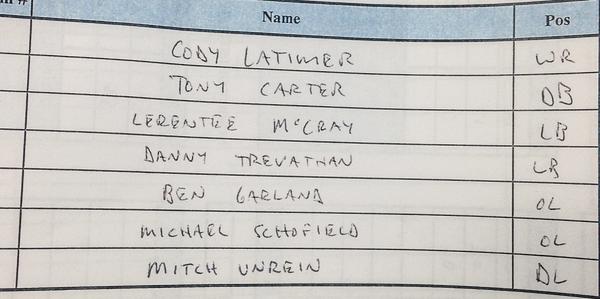 Name Pos
CODY LATIMER WR
TONY CARTER DB
LERENTEE McCRAY LB
DANNY TREVATHAN LB
BEN GARLAND OL
MICHAEL SCHOFIELD OL
MITCH UNREIN DL